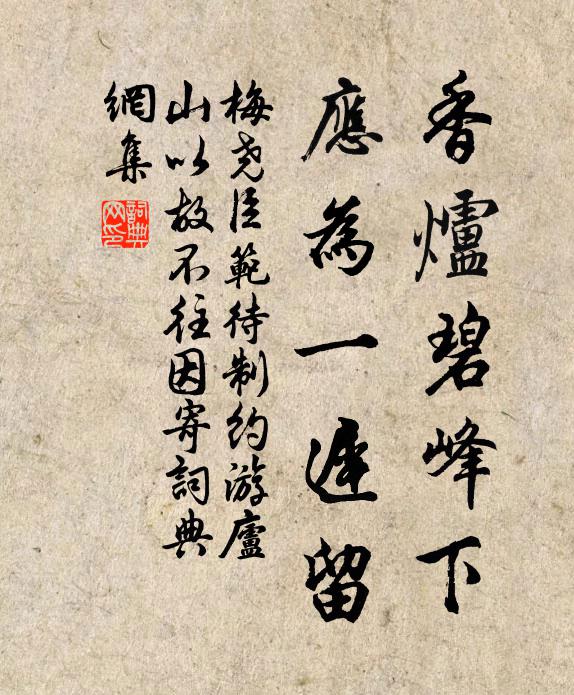 香爐碧峰下
應為一遲留
梅尧臣範待制約游廬
山以故不往因寄詞典
網集
詞典
网印